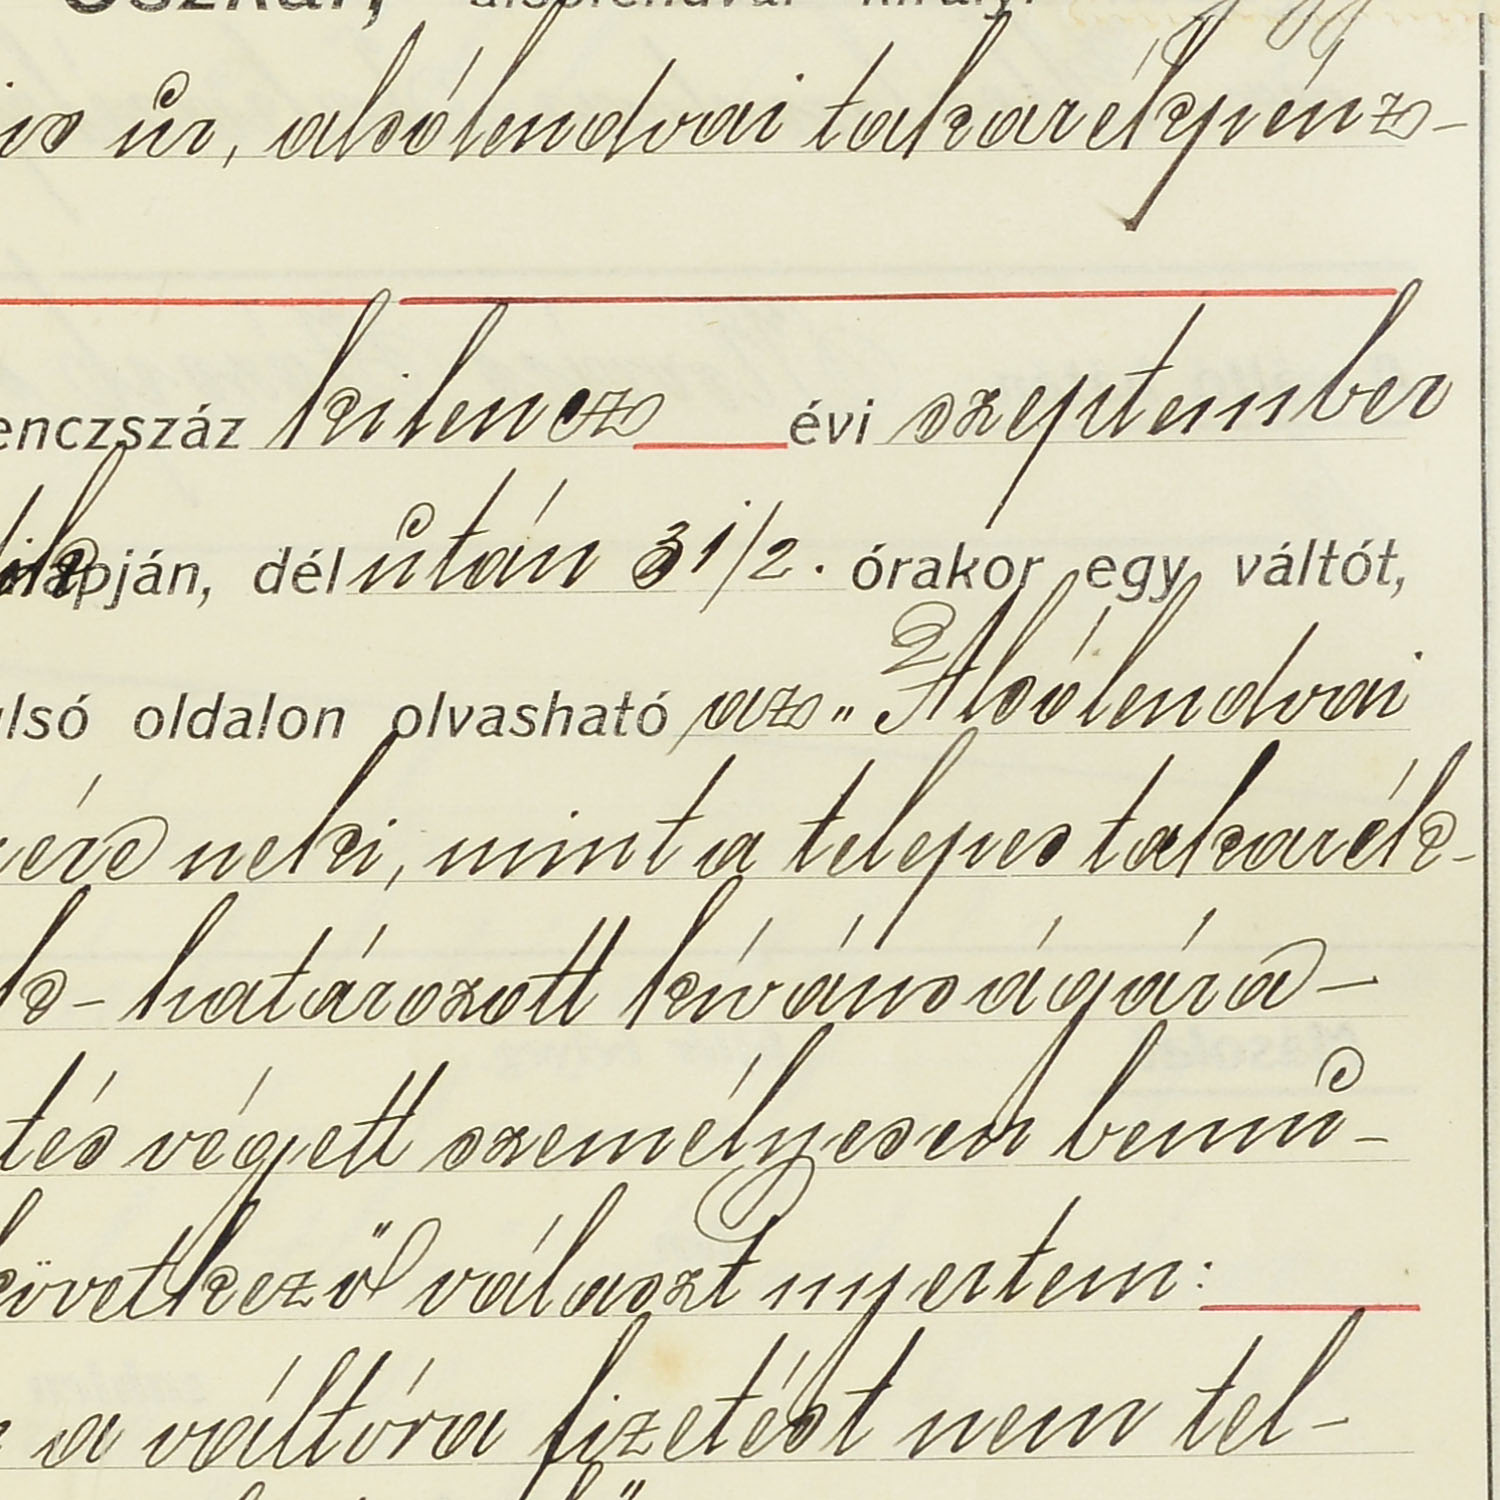 Oszkár, alsólendvai királyi
úr, alsólendvai takarékpénz-
enczszáz kilencz évi szeptember
alapján, dél után 3 1/2. órakor egy váltót,
ulsó oldalon olvasható az „Alsólendvai
neki, mint a telepes takarék-
k- határozott kívánságára-
tés végett személyesen bemu-
következő választ nyertem:
a váltóra fizetést nem tel-